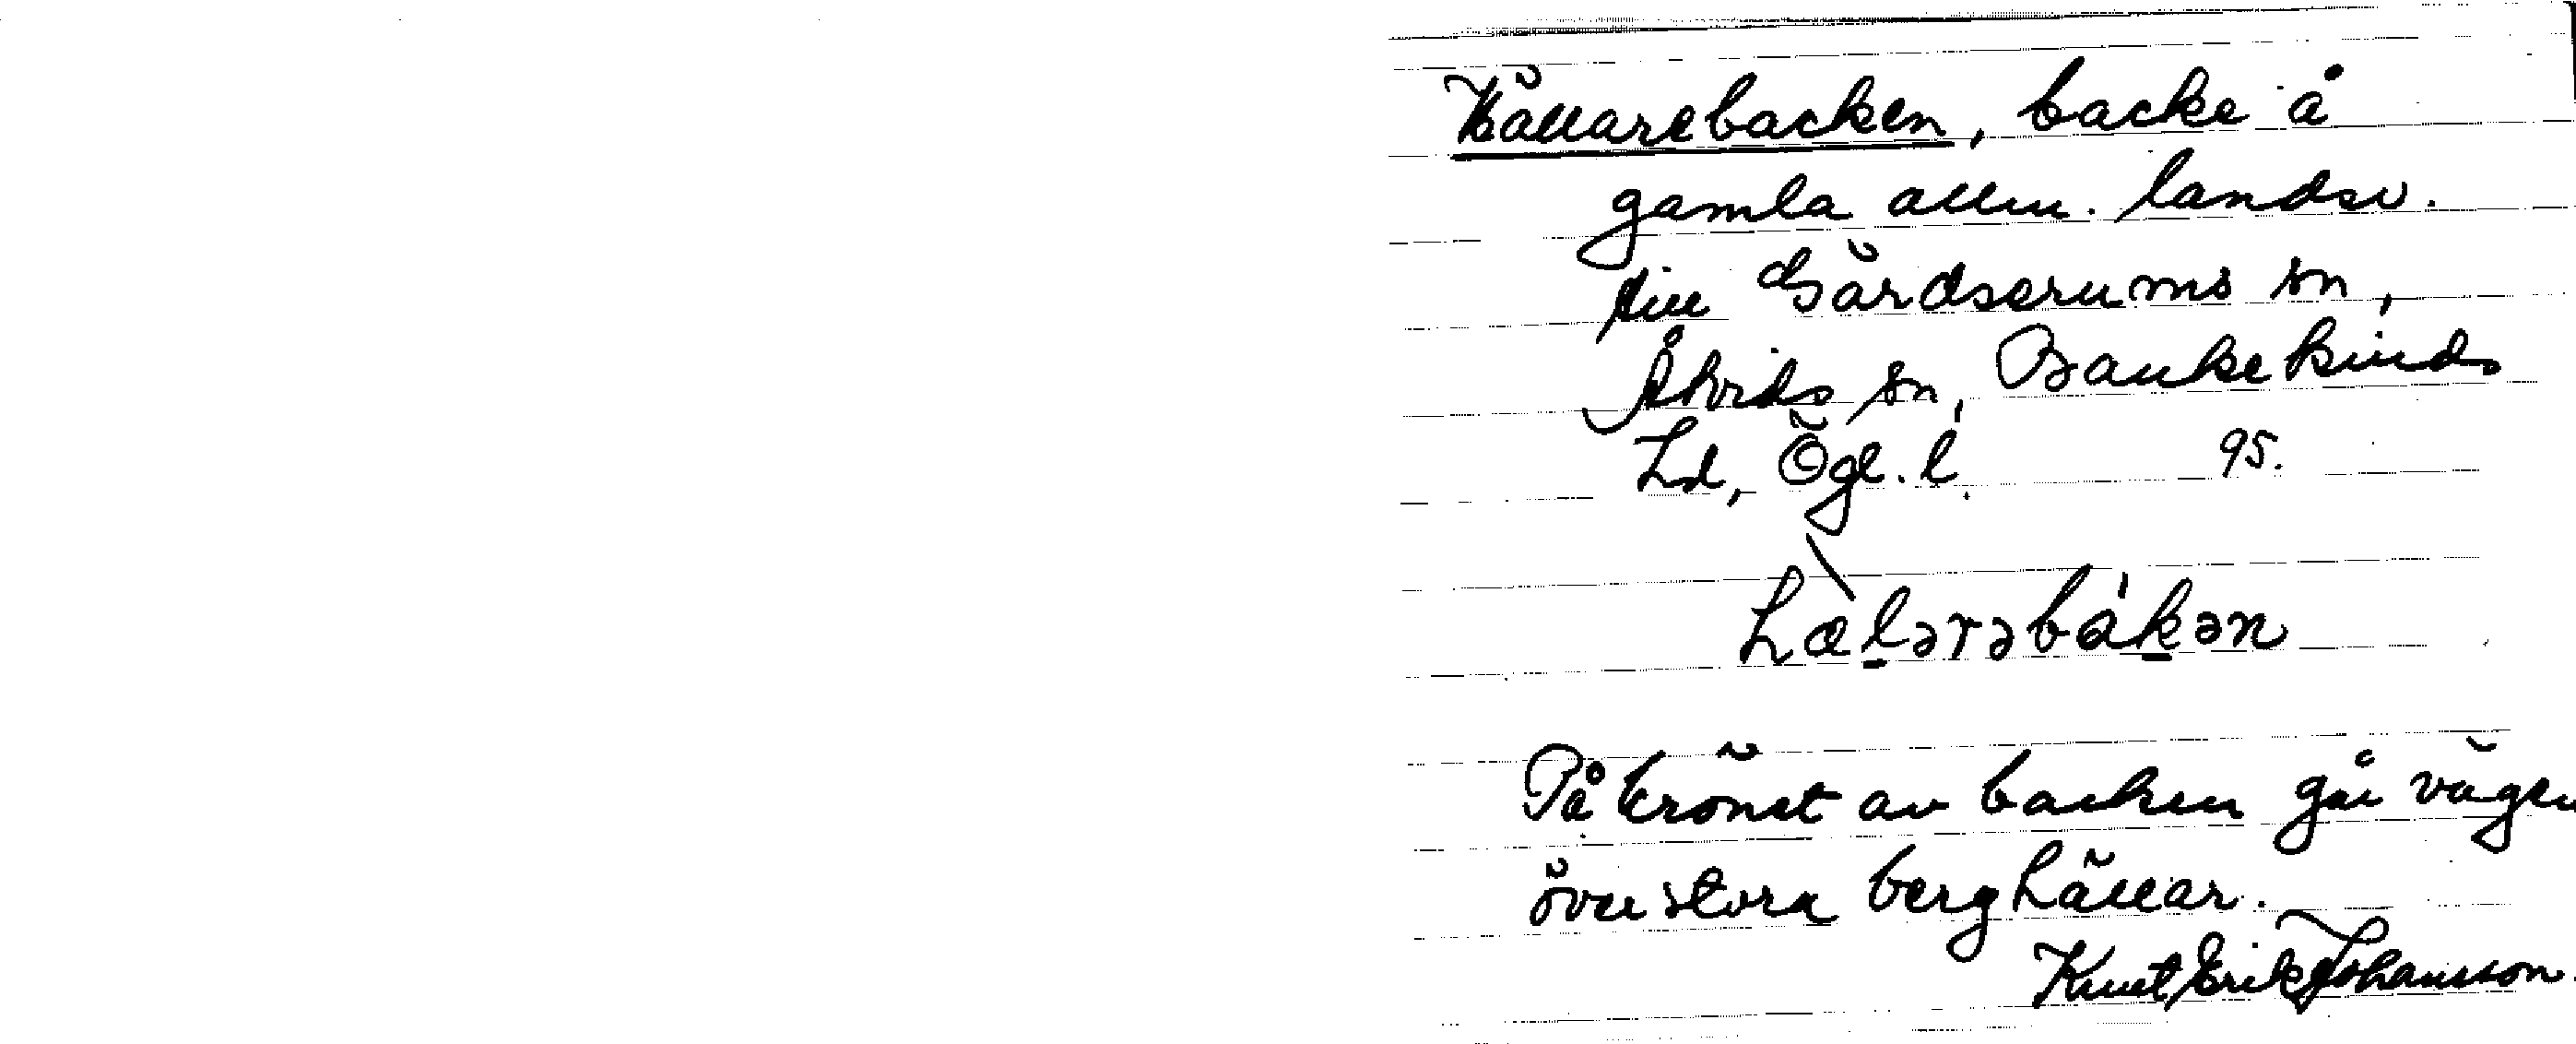 Hällarebacken, backe å
gamla allm. landsv.
till Gärdserums sn,
Åtvids sn, Bankekinds
hd, Ögl. l. 95.
hælərəbakən
På krönet av backen går vägen
över stora berghällar.
Knut Erik Johansson.